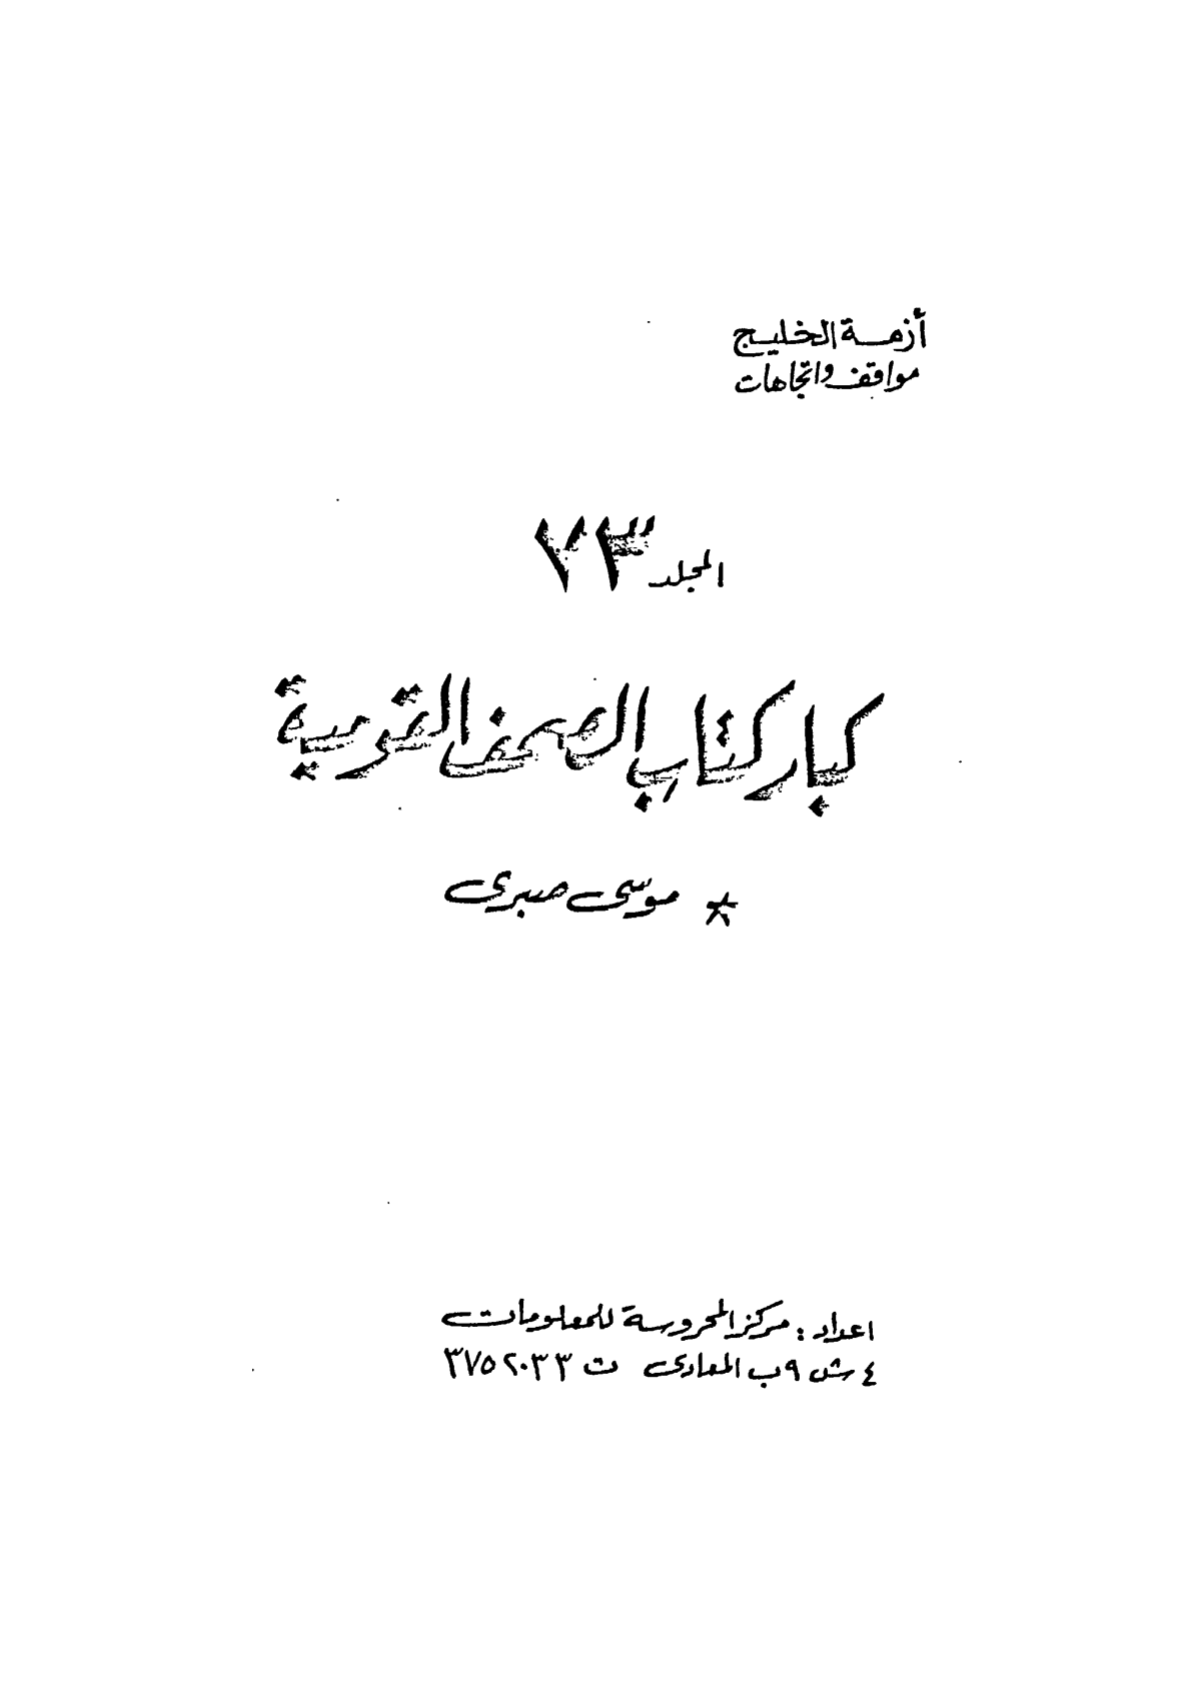 أزمة الخليج
مواقف واتجاهات
المجلد ٧٣
كبار كتاب الصحف القومية
* موسى صبرى
اعداد : مركز المحروسة للمعلومات
٤ ش ٩ ب المعادى ت ٣٧٥٢٠٣٣